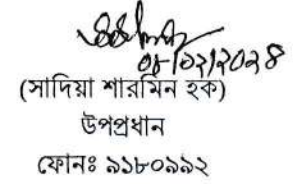 ০৮/১২/২০২৪
(সাদিয়া শারমিন হক)
উপপ্রধান
ফোনঃ ৯১৮০৯৯২